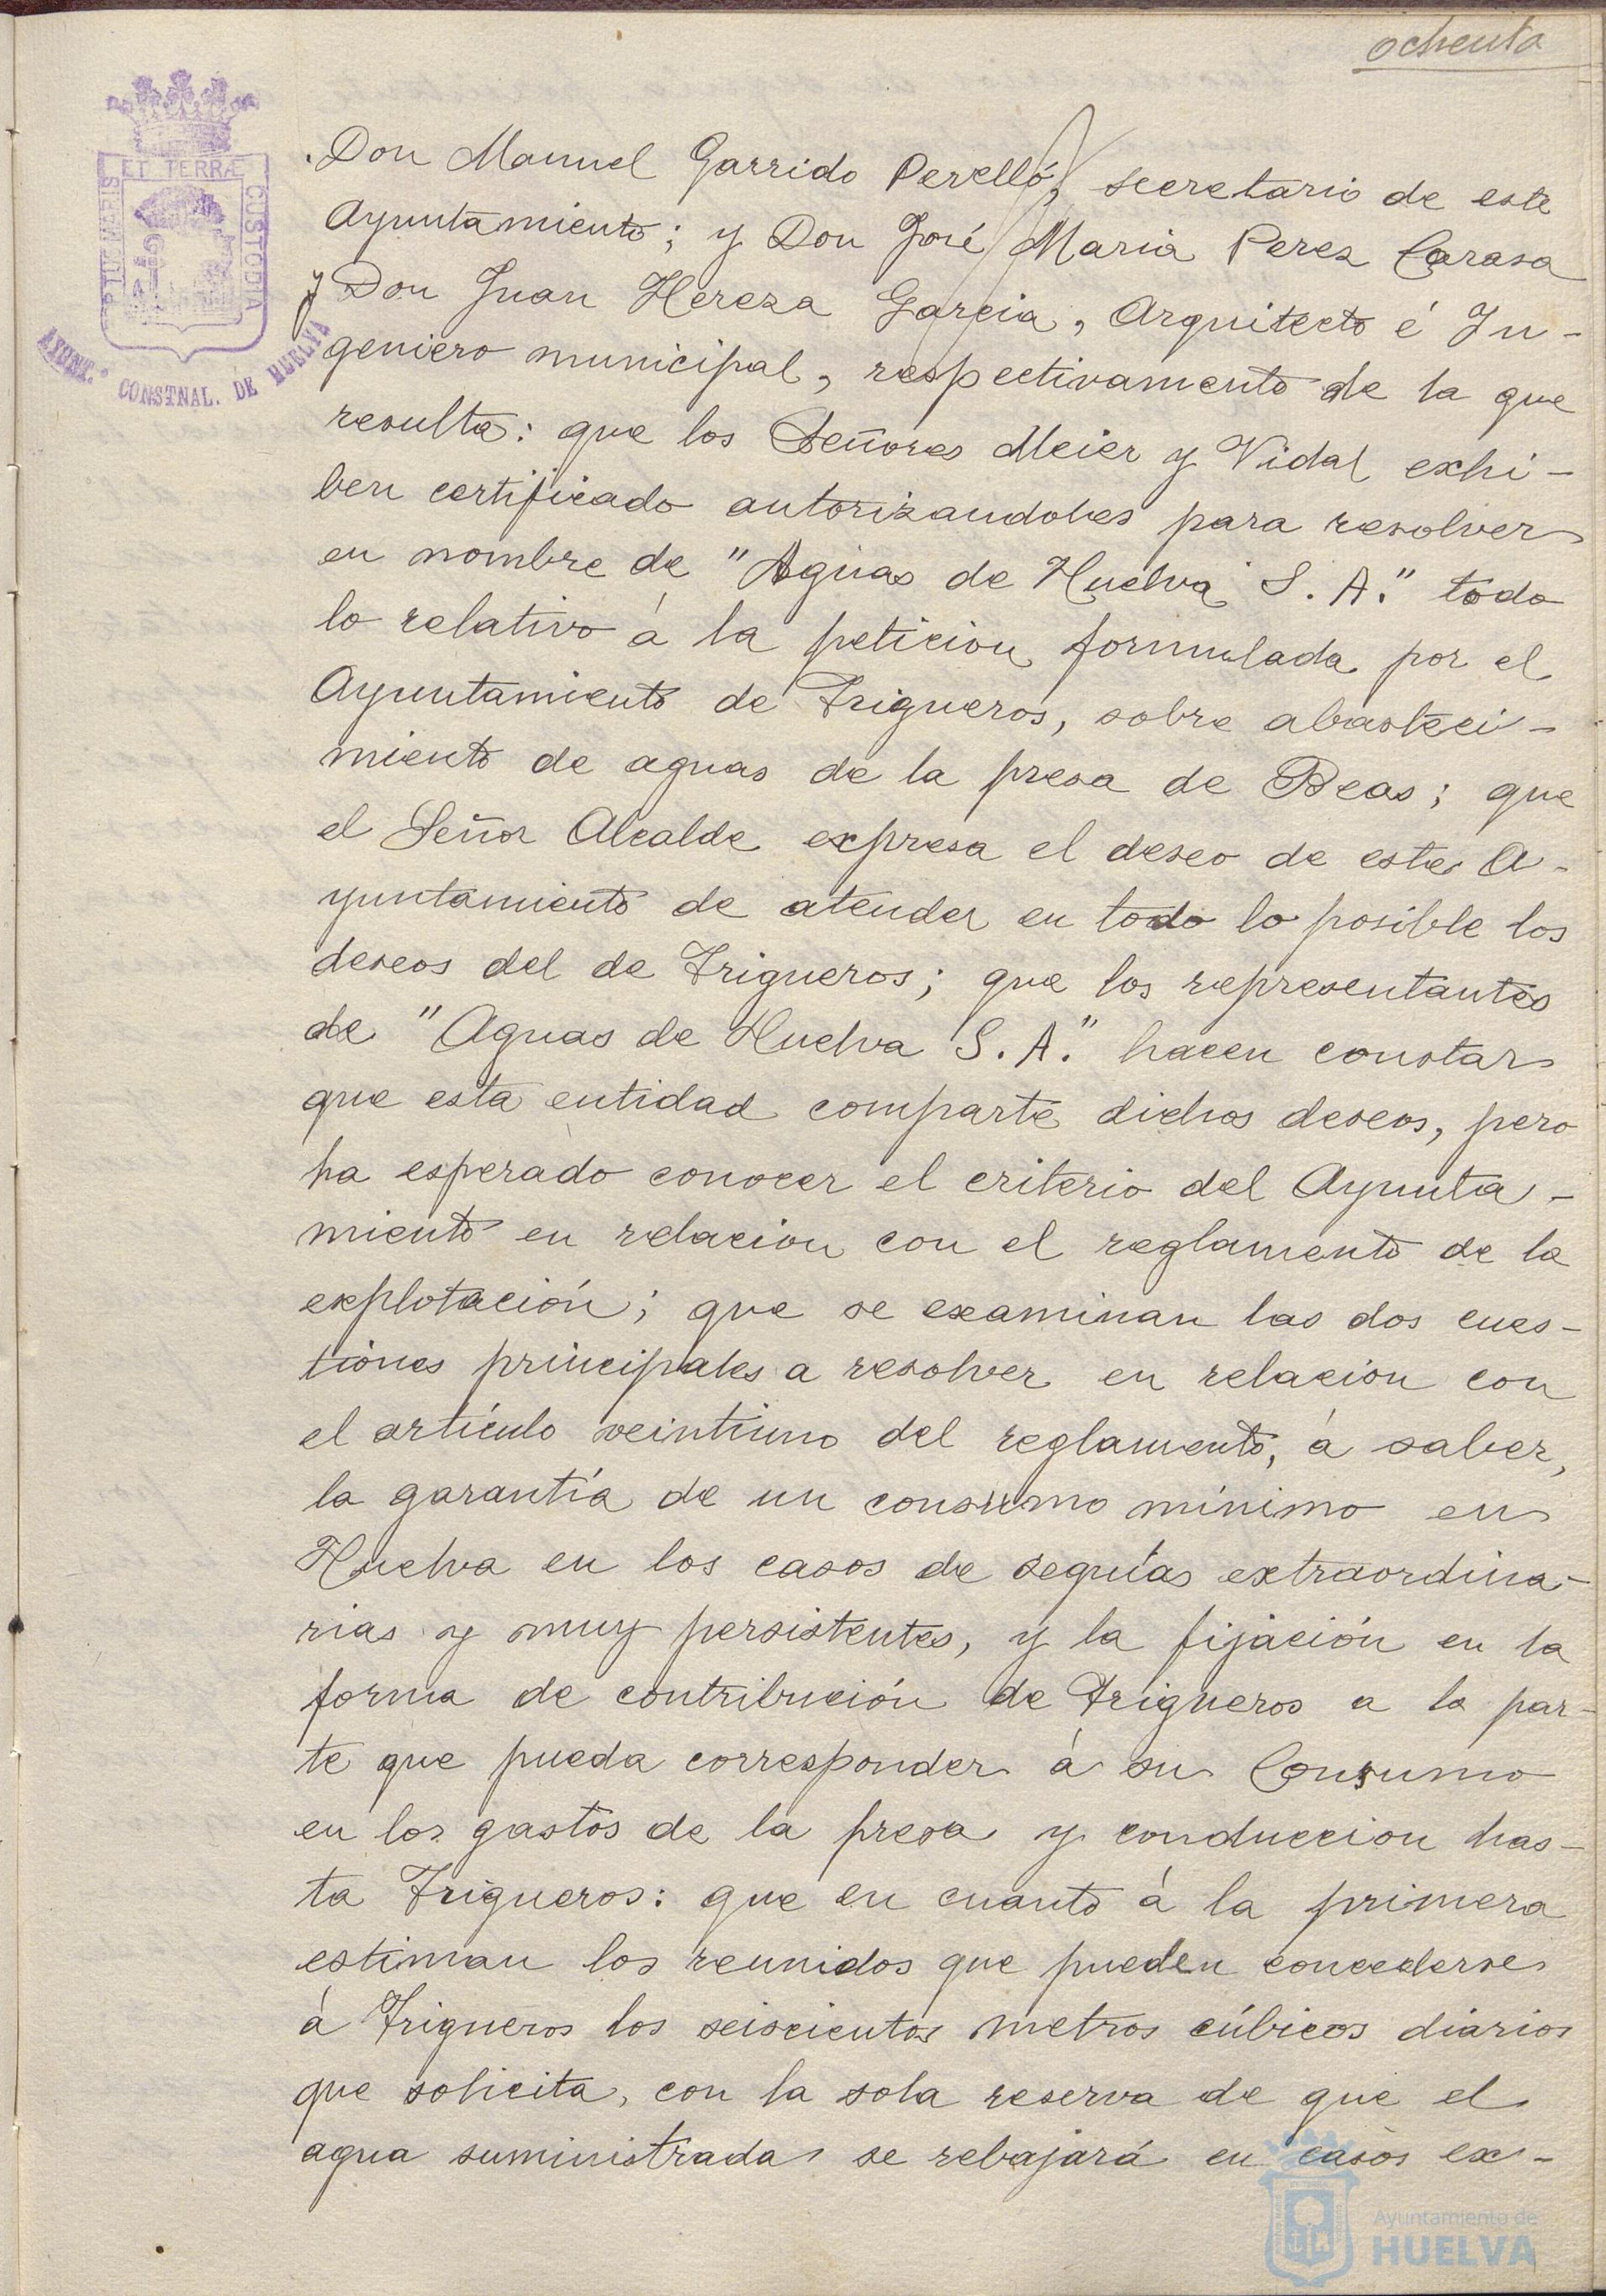 ochenta
ET TERRÆ
PORTUS MARIS
CUSTODIA
AYUNT.º CONSTNAL. DE HUELVA
Don Manuel Garrido Perelló, secretario de este
Ayuntamiento; y Don José Maria Perez Carasa
y Don Juan Hereza Garcia, Arquitecto é In-
geniero municipal, respectivamente de la que
resulta: que los Señores Meier y Vidal exhi-
ben certificado autorizandoles para resolver
en nombre de "Aguas de Huelva S. A." todo
lo relativo á la peticion formulada por el
Ayuntamiento de Trigueros, sobre abasteci-
miento de aguas de la presa de Beas; que
el Señor Alcalde expresa el deseo de este A-
yuntamiento de atender en todo lo posible los
deseos del de Trigueros; que los representantes
de "Aguas de Huelva S. A." hacen constar
que esta entidad comparte dichos deseos, pero
ha esperado conocer el criterio del Ayunta-
miento en relacion con el reglamento de la
explotación; que se examinan las dos cues-
tiones principales a resolver en relacion con
el artículo veintiuno del reglamento, á saber,
la garantía de un consumo mínimo en
Huelva en los casos de sequías extraordina-
rias y muy persistentes, y la fijación en la
forma de contribución de Trigueros a la par-
te que pueda corresponder á su Consumo
en los gastos de la presa y conduccion has-
ta Trigueros: que en cuanto á la primera
estiman los reunidos que pueden concederse
á Trigueros los seiscientos metros cúbicos diarios
que solicita, con la sola reserva de que el
agua suministrada se rebajará en casos ex-
Ayuntamiento de
HUELVA